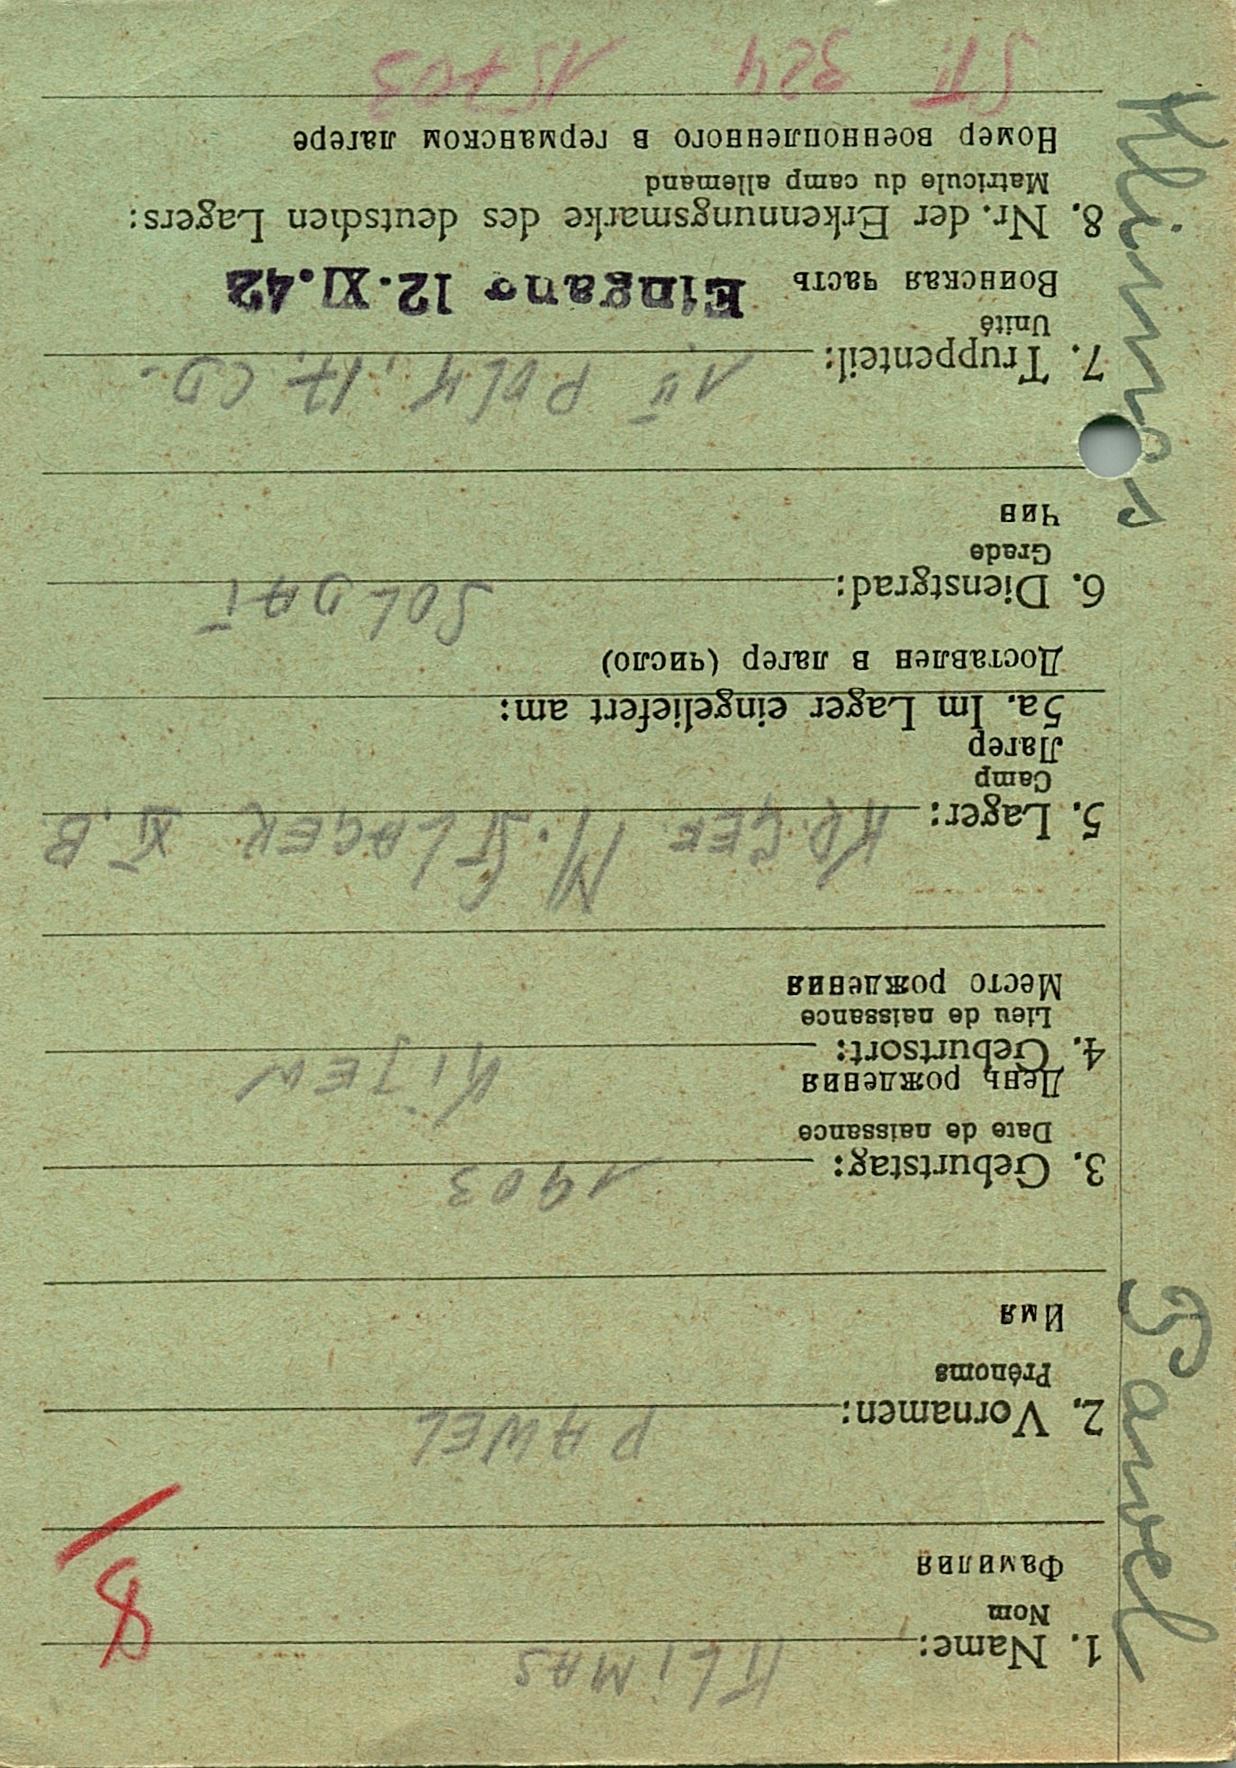 1. Name: KLIMAS
Nom
Фамилия
8
2. Vornamen: PAWEL
Prénoms
Имя
3. Geburtstag: 1903
Date de naissance
День рождения
4. Geburtsort: KIJEW
Lieu de naissance
Место рождения
5. Lager: M. STLAGER XI.B
Camp
Лагер
5a. Im Lager eingeliefert am:
Доставлен в лагер (число)
6. Dienstgrad: SOLDAT
Grade
Чин
7. Truppenteil: POLK, 17. CD.
Unité
Воинская часть Eingang 12.XI.42
8. Nr. der Erkennungsmarke des deutschen Lagers:
Matricule du camp allemand
Номер военнопленного в германском лагере
324 15703
Klimas Pawel